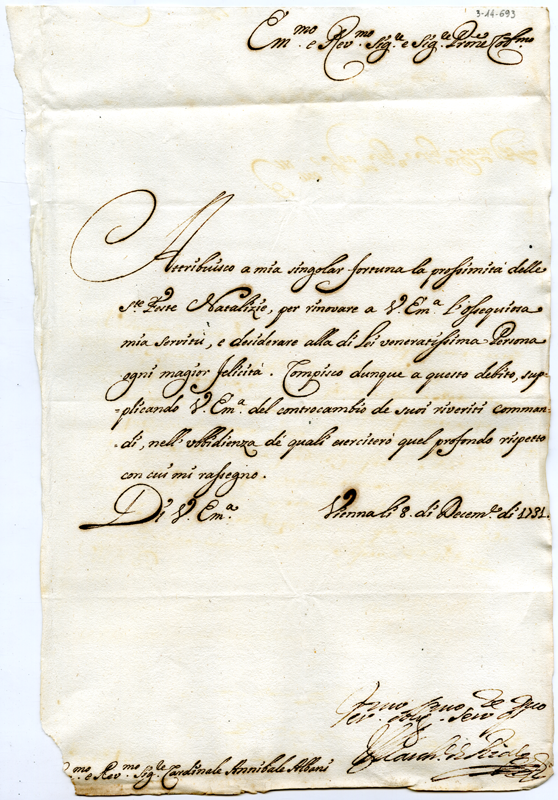 3-14-693
Em.mo e Rev.mo Sig.re e Sig.re Prone Col.mo
Attribuisco a mia singolar fortuna la prossimità delle
S.te Feste Natalizie, per rinovare a V. Em.a l'ossequiosa
mia servitù, e desiderare alla di Lei veneratissima Persona
ogni magior felicità. Compisco dunque a questo debito, sup=
=plicando V. Em.a del contracambio de suoi riveriti comman=
di, nell'ubbidienza de quali eserciterò quel profondo rispetto
con cui mi rassegno.
Di V. Em.a Vienna li 8. di Decem.re di 1731.
Serv.
mo e Rev.mo Sig.re Cardinale Annibale Albani